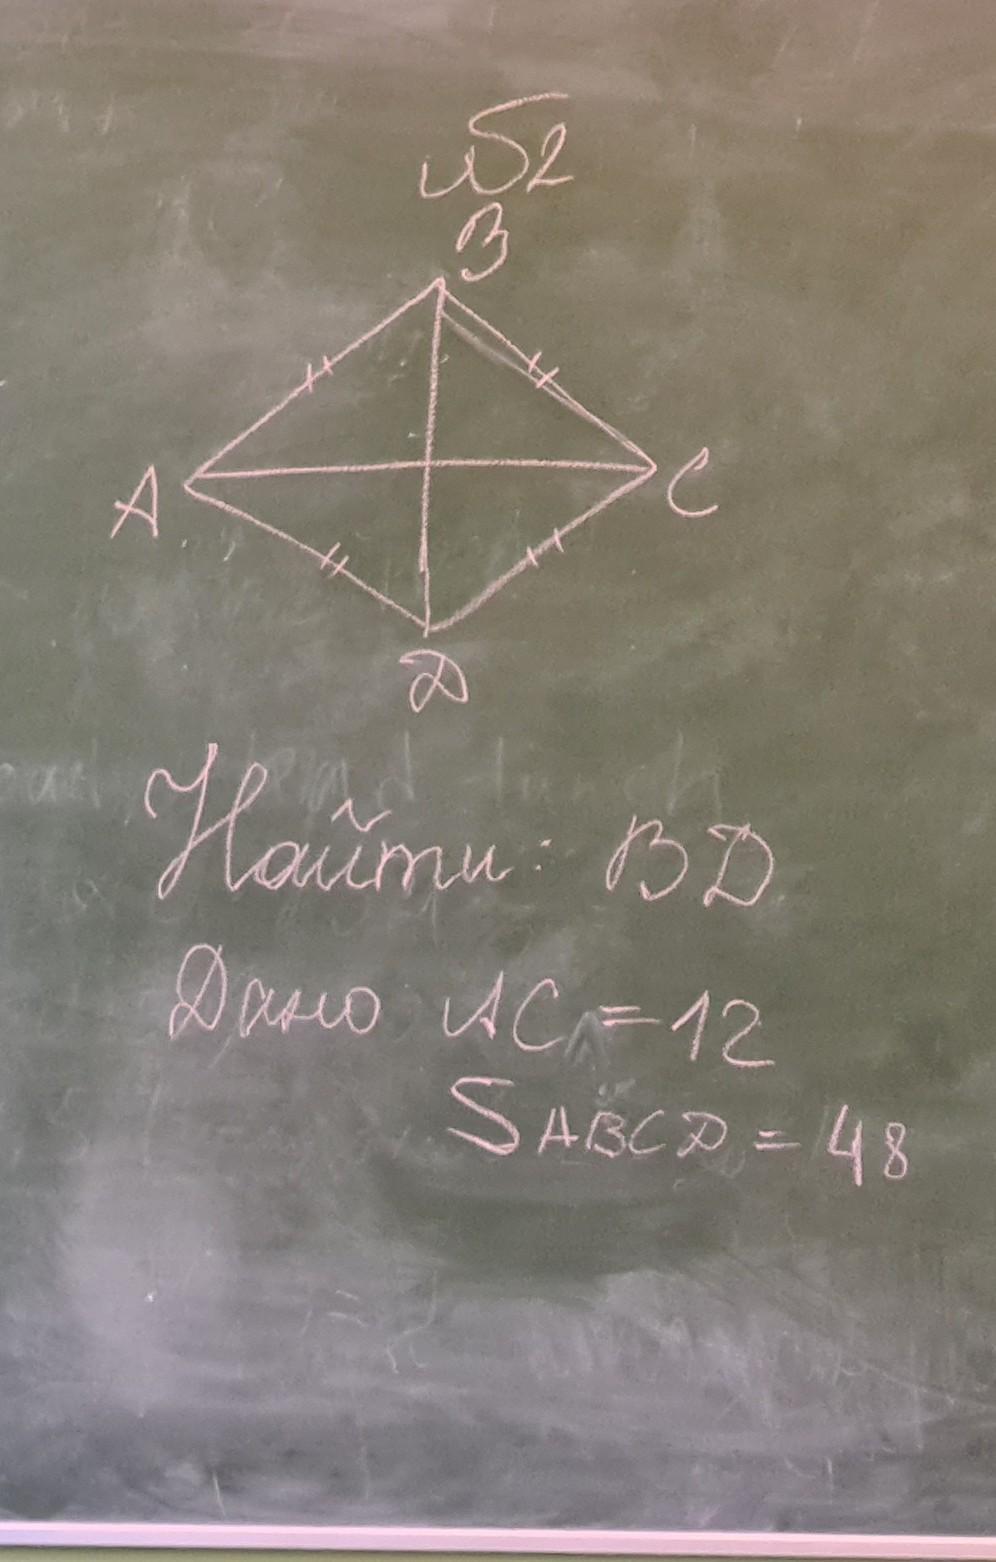 №2
B
A
C
D
Найти: BD
Дано AC = 12
SABCD = 48